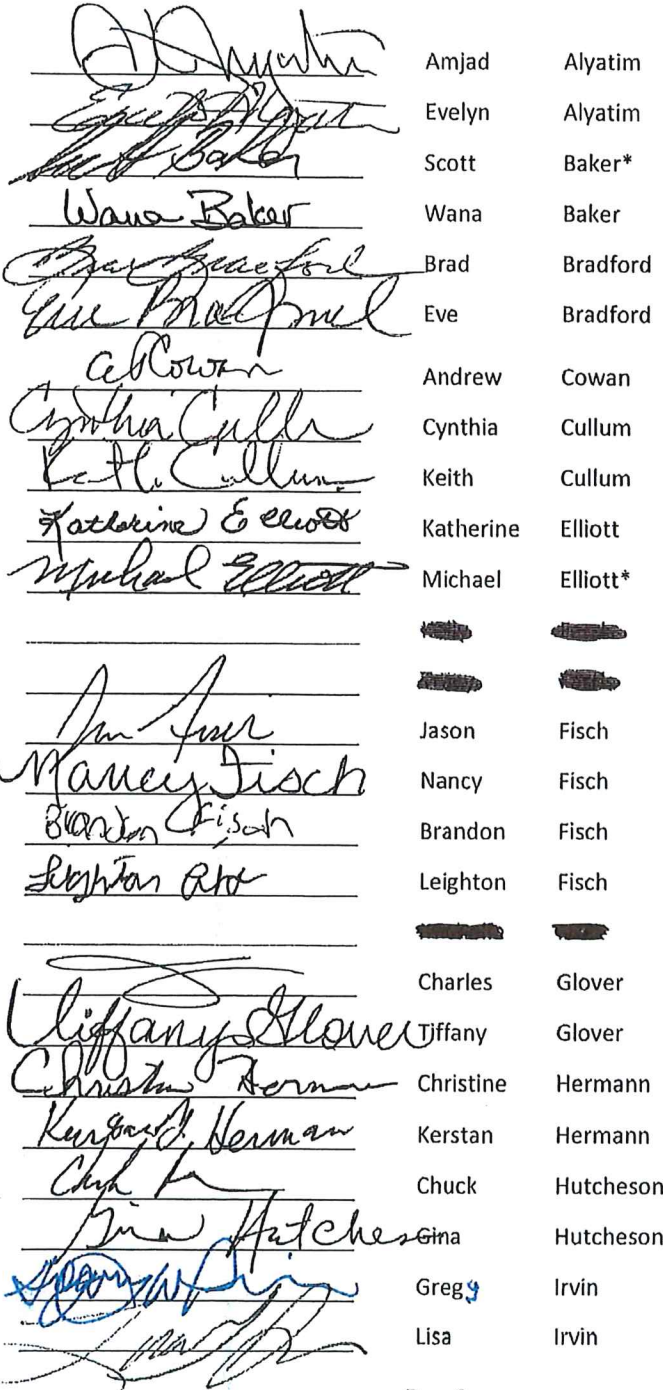 Amjad Alyatim Amjad Alyatim
Evelyn Alyatim Evelyn Alyatim
Scott Baker Scott Baker*
Wana Baker Wana Baker
Brad Bradford Brad Bradford
Eve Bradford Eve Bradford
Cowan Andrew Cowan
Cynthia Cynthia Cullum
Keith Cullum Keith Cullum
Katherine Elliott Katherine Elliott
Michael Elliott Michael Elliott*
Jason Fisch
Nancy Fisch Nancy Fisch
Brandon Fisch Brandon Fisch
Leighton Leighton Fisch
Charles Glover
Tiffany Glover Tiffany Glover
Christine Christine Hermann
Herman Kerstan Hermann
Chuck Hutcheson
Gina Hutcheson Gina Hutcheson
Gregy Irvin
Lisa Irvin